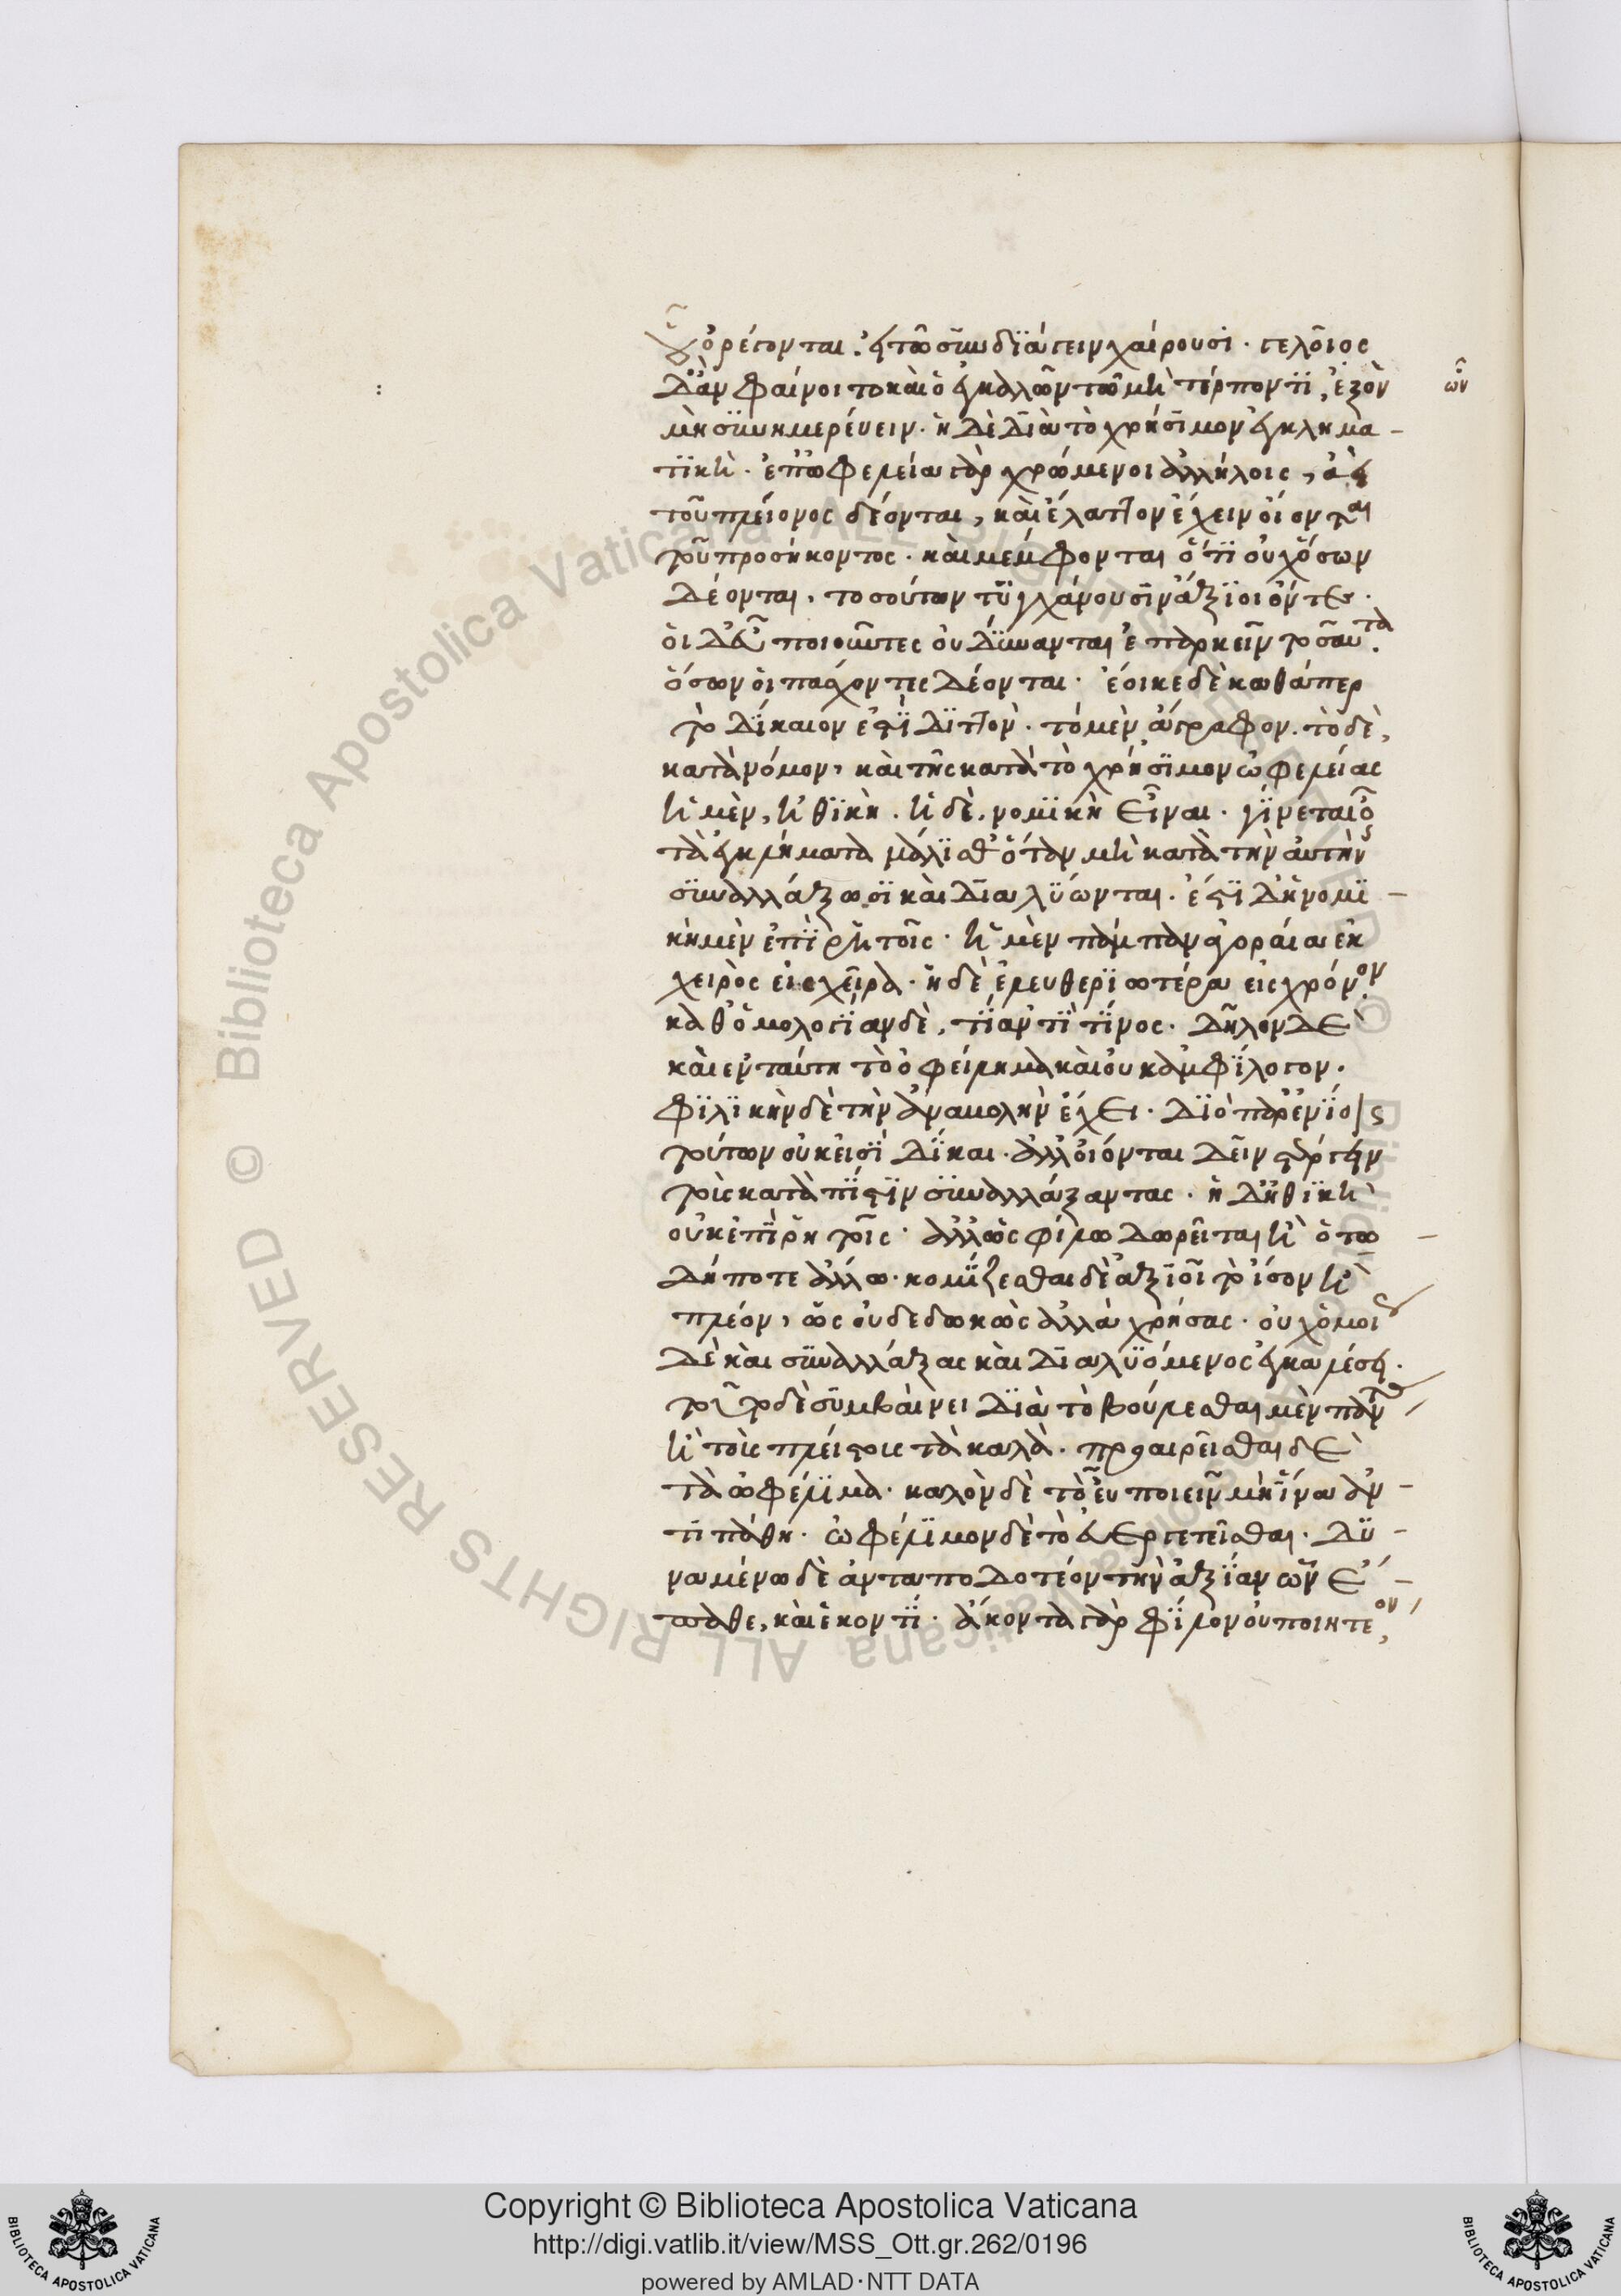 οὗ ὀρέγονται. εἰ τῶ συνδιάγειν χαίρουσι· γελοῖος
δ' ἂν φαίνοιτο καὶ ὁ ἐγκαλῶν τῶ μὴ τέρποντι, ἐξὸν
ὧν
μὴ συνημερεύειν. ἡ δὲ διὰ τὸ χρήσιμον ἐγκλημα-
τικὴ. ἐπ' ὠφελεία γὰρ χρώμενοι ἀλλήλοις, ἀεὶ
τοῦ πλείονος δέονται, καὶ ἔλαττον ἔχειν οἴονται
τοῦ προσήκοντος. καὶ μέμφονται ὅτι οὐχ ὅσων
δέονται, τοσούτων τυγχάνουσιν ἄξιοι ὄντες.
οἱ δ' εὖ ποιοῦντες οὐ δύνανται ἐπαρκεῖν τοσαῦτα.
ὅσων οἱ πάσχοντες δέονται. ἔοικε δὲ καθάπερ
τὸ δίκαιον ἐστὶ διττὸν. τὸ μὲν ἄγραφον. τὸ δὲ,
κατὰ νόμον, καὶ τῆς κατὰ τὸ χρήσιμον ὠφελείας
ἡ μὲν, ἠθικὴ. ἡ δὲ, νομικὴ εἶναι. γίνεται οὖν
τὰ ἐγκλήματα μάλισθ' ὅταν μὴ κατὰ τὴν αὐτὴν
συναλλάξωσι καὶ διαλύωνται. ἔστι δ' ἡ νομι-
κὴ μὲν ἐπὶ ῥητοῖς. ἡ μὲν πάμπαν ἀγοραία ἐκ
χειρὸς εἰς χεῖρα. ἡ δὲ ἐλευθεριωτέρα εἰς χρόνον.
καθ' ὁμολογίαν δὲ, τί ἀντὶ τίνος. δῆλον δὲ
καὶ ἐν ταύτη τὸ ὀφείλημα καὶ οὐκ ἀμφίλογον.
φιλικὴν δὲ τὴν ἀναβολὴν ἔχει. διὸ παρ' ἐνίοις
τούτων οὐκ εἰσὶ δίκαι. ἀλλ' οἴονται δεῖν στέργειν
τοὺς κατὰ πίστιν συναλλάξαντας. ἡ δ' ἠθικὴ
οὐκ ἐπὶ ῥητοῖς. ἀλλ' ὡς φίλω δωρεῖται ἢ ὅτω
δήποτε ἄλλω. κομίζεσθαι δὲ ἀξιοῖ τὸ ἴσον ἢ
πλέον, ὡς οὐ δεδωκὼς ἀλλὰ χρήσας. οὐχ ὁμοίως
δὲ καὶ συναλλάξας καὶ διαλυόμενος ἐγκαλέσει.
τοῦτο δὲ συμβαίνει διὰ τὸ βούλεσθαι μὲν πάντας
ἢ τοὺς πλείστους τὰ καλὰ. προαιρεῖσθαι δὲ
τὰ ὠφέλιμα. καλὸν δὲ τὸ εὖ ποιεῖν μὴ ἵνα ἀν-
τιπάθη. ὠφέλιμον δὲ τὸ εὐεργετεῖσθαι. δυ-
ναμένω δὲ ἀνταποδοτέον τὴν ἀξίαν ὧν ἔ-
παθε, καὶ ἑκοντί. ἄκοντα γὰρ φίλον οὐ ποιητέον,
© Biblioteca Apostolica Vaticana ALL RIGHTS RESERVED
Copyright © Biblioteca Apostolica Vaticana
http://digi.vatlib.it/view/MSS_Ott.gr.262/0196
powered by AMLAD·NTT DATA
BIBLIOTECA APOSTOLICA VATICANA
BIBLIOTECA APOSTOLICA VATICANA